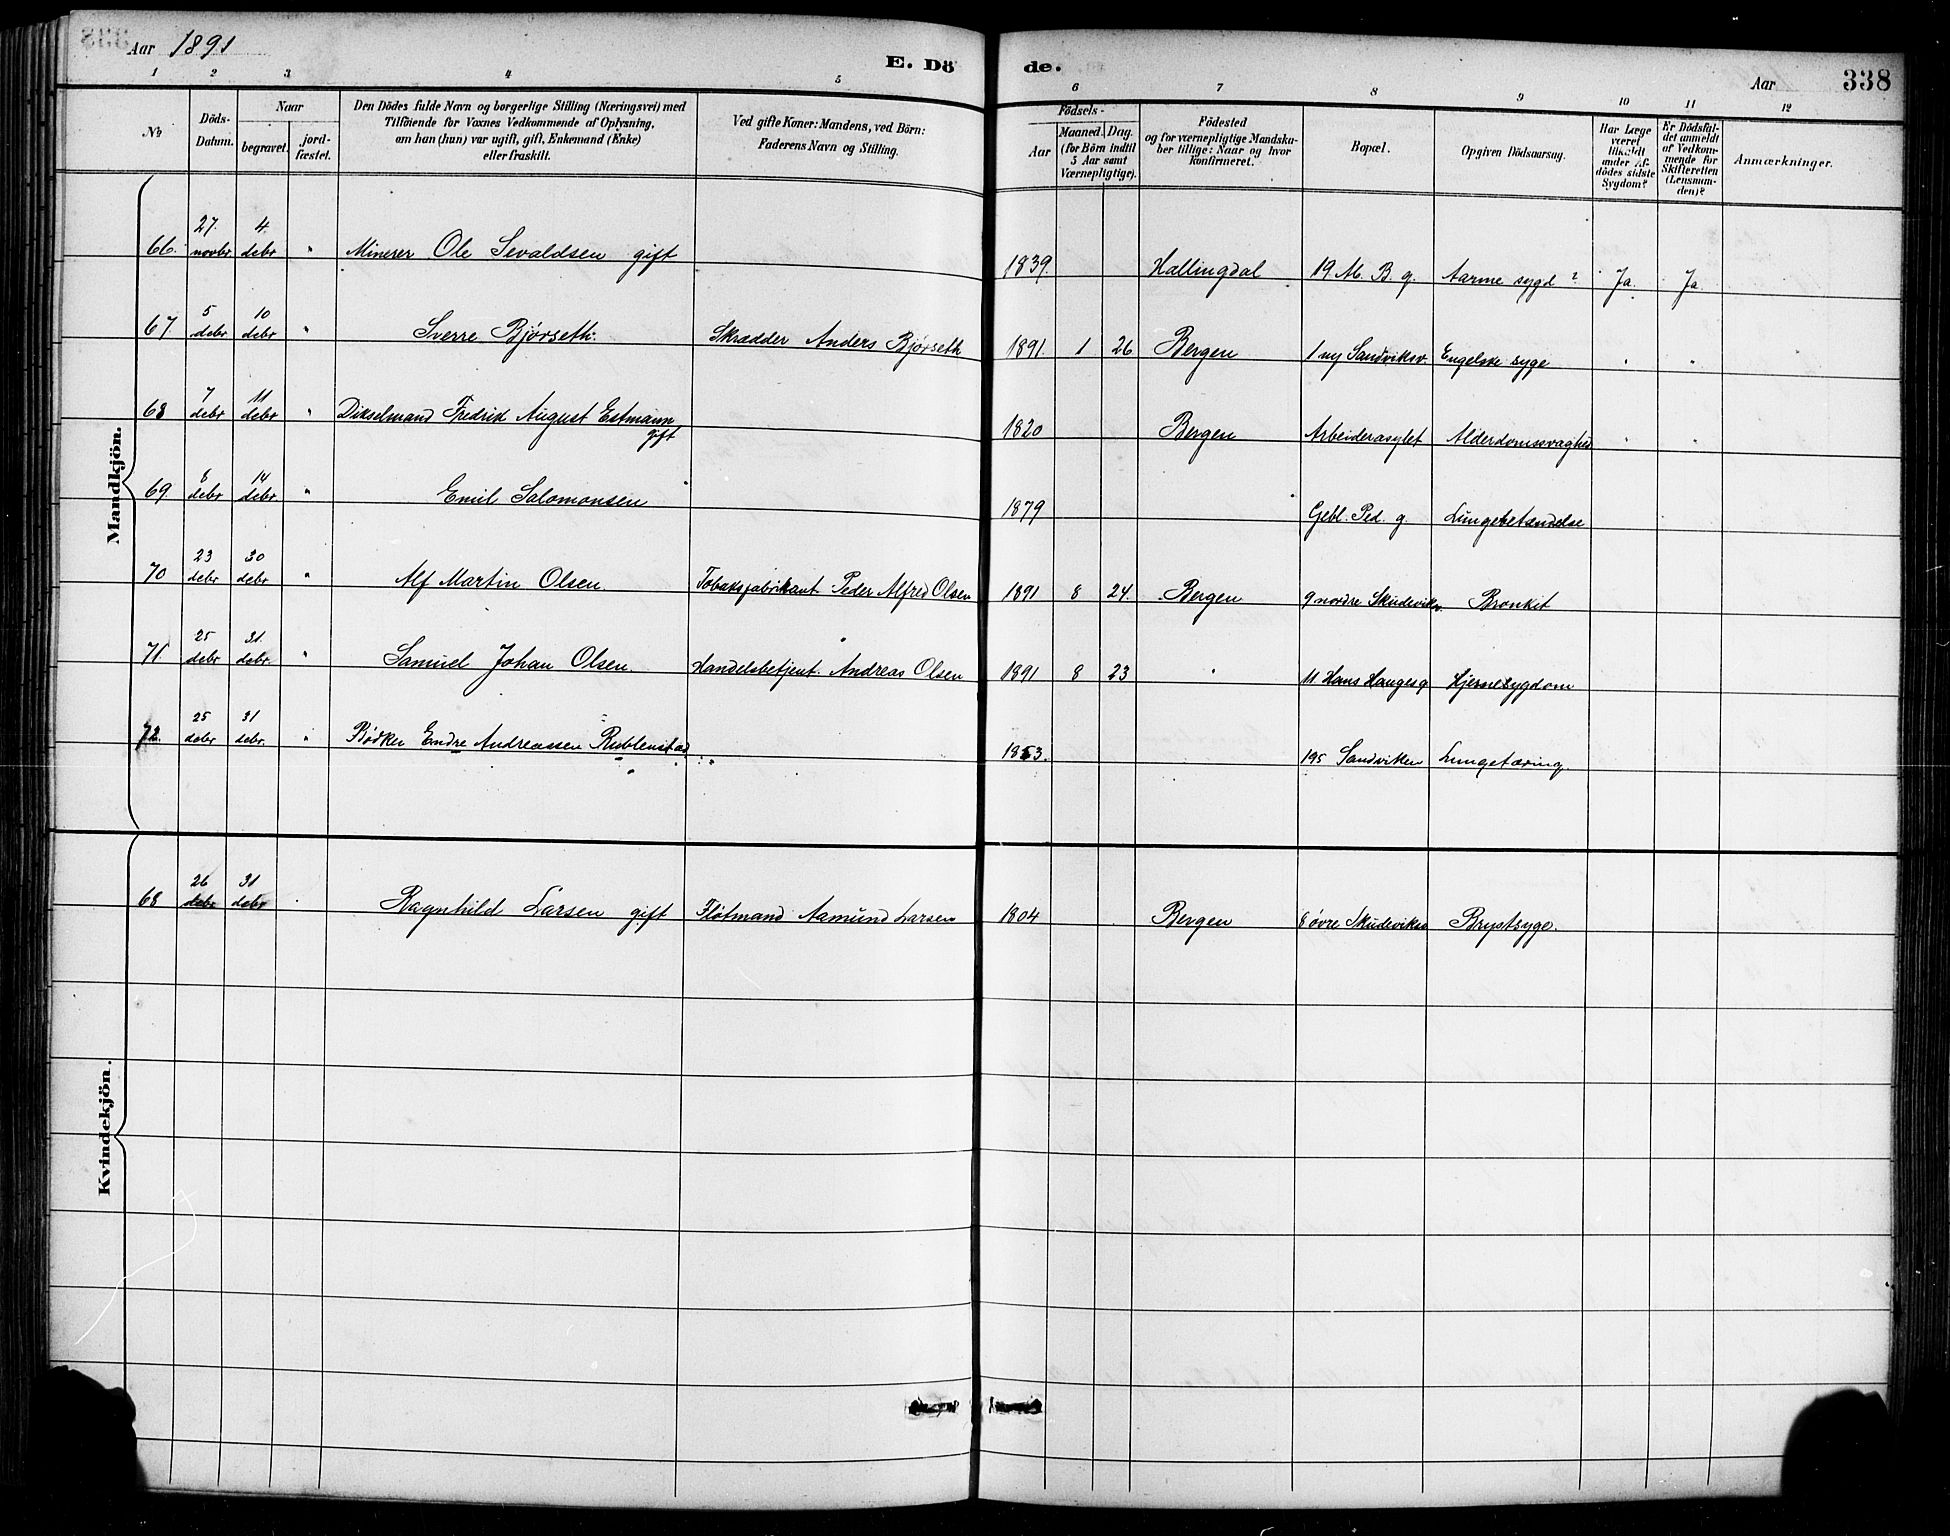 Aar 1891
E. Dö de.
Aar 338
1 2 3 4 5 6 7 8 9 10 11 12
No
Döds-Datum.
Naar
begravet.
jord-fæstet.
Den Dödes fulde Navn og borgerlige Stilling (Næringsvei) med
Tilföiende for Voxnes Vedkommende af Oplysning,
om han (hun) var ugift, gift, Enkemand (Enke)
eller fraskilt.
Ved gifte Koner: Mandens, ved Börn:
Faderens Navn og Stilling.
Födsels-
Aar
Maaned. Dag.
(for Börn indtil
5 Aar samt
Værnepligtige).
Födested
og for værnepligtige Mandska-
ber tillige: Naar og hvor
konfirmeret.
Bopæl.
Opgiven Dödsaarsag.
Har Læge
været
tilkaldt
under Af-
dödes sidste
Sygdom?
Er Dödsfal-
det anmeldt
af Vedkom-
mende for
Skifteretten
(Lensman-
den)?
Anmærkninger.
Mandkjön.
66. 27. novbr 4. debr " Minerer Ole Sevaldsen gift 1839. Hallingdal 19 M. B. g. Aarme sygd ? Ja. Ja
67. 5 debr 10 debr " Sverre Bjørseth. Skrædder Anders Bjørseth 1891. 1 26 Bergen 1 ny Sandviksv. Engelske syge " "
68 7 debr 11 debr " Dikselmand Fredrik August Estmann gift 1820 Bergen Arbeiderasylet Alderdomssvaghed " "
69 8 debr 14 debr " Emil Salomonsen 1879 Gebl. Ped. g. Lungebetændelse
70 23 debr 30 debr " Alf Martin Olsen. Tobaksfabrikant Peder Alfred Olsen 1891 8 24. Bergen 9 nordre Skudeviksv. Bronkit
71. 25 debr 31. debr. " Samuel Johan Olsen. Handelsbetjent. Andreas Olsen 1891 8 23 " 11 Hans Haugesg Hjernesygdom
72. 25 debr 31 debr. " Bødker Endre Andreassen 1853. 195 Sandviken Lungetæring.
Kvindekjön.
68 26 debr 31 debr Ragnhild Larsen gift Fløtmand Aamund Larsen 1804 Bergen 8 øvre Skudeviksv Brystsyge.